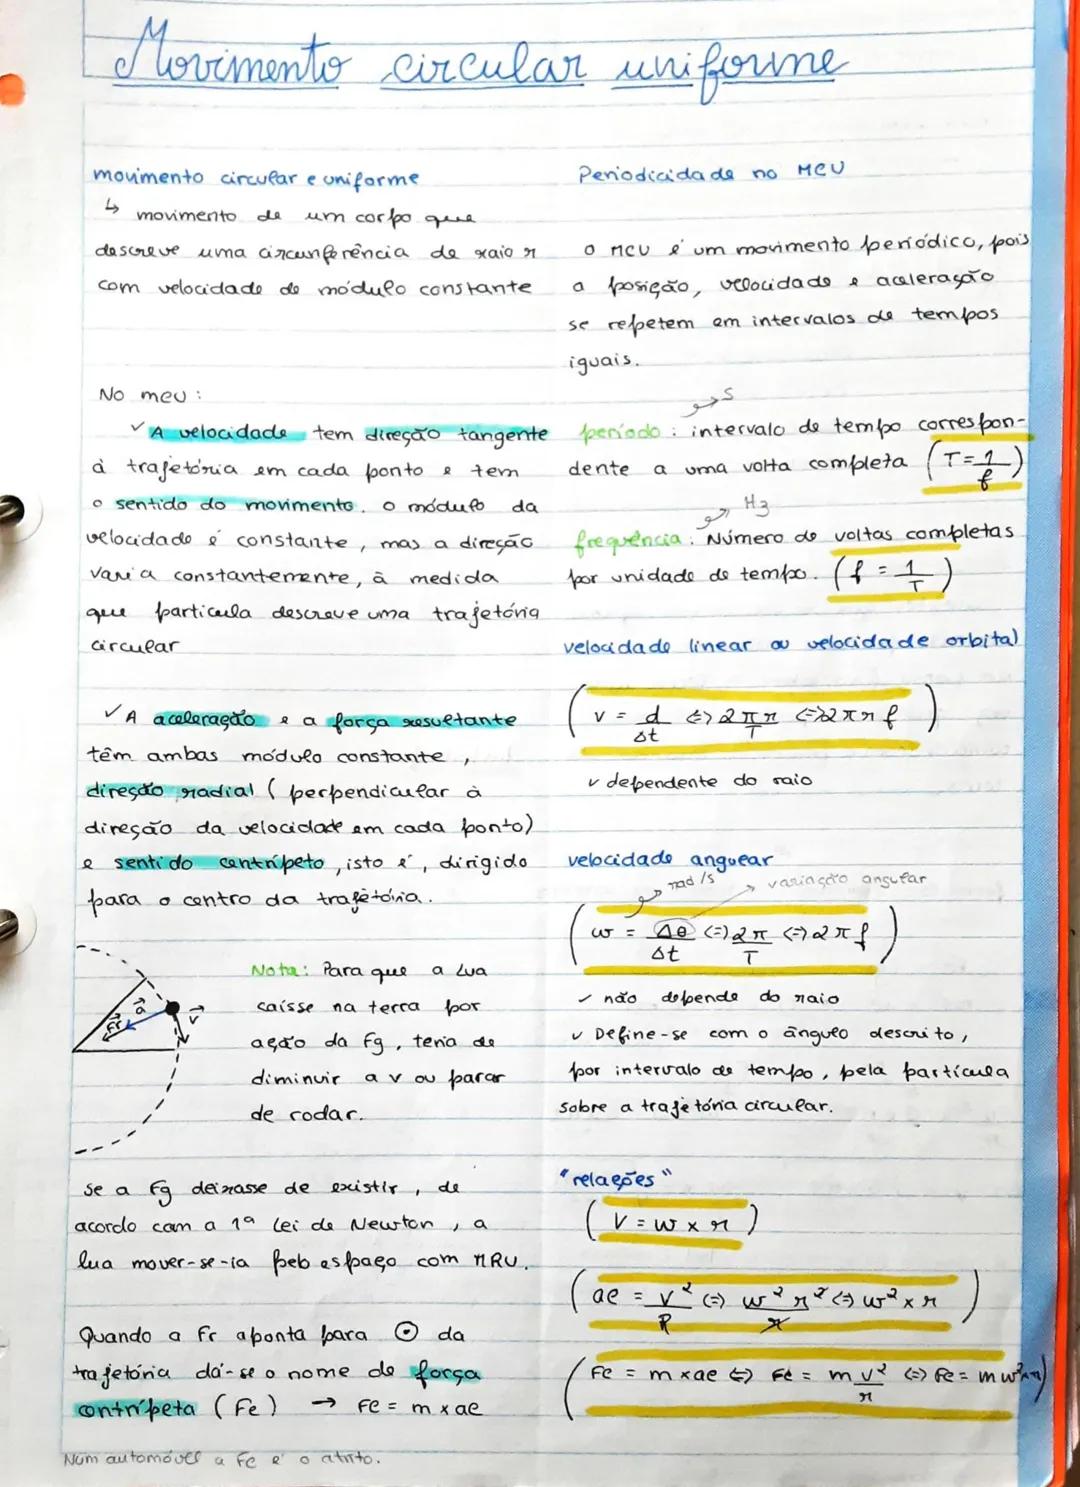 Movimento circular uniforme
movimento circular e uniforme
↳ movimento de um corpo que
descreve uma circunferência de raio r
com velocidade de módulo constante
No mcu :
✓ A velocidade tem direção tangente
à trajetória em cada ponto e tem
o sentido do movimento. O módulo da
velocidade é constante, mas a direção
varia constantemente, à medida
que particula descreve uma trajetória
circular
✓ A aceleração e a força resultante
têm ambas módulo constante,
direção radial ( perpendicular à
direção da velocidade em cada ponto)
e sentido centrípeto, isto é, dirigido
para o centro da trajetória.
a
Fr
v
Nota: Para que a Lua
caísse na terra por
ação da Fg, teria de
diminuir a v ou parar
de rodar.
Se a Fg deixasse de existir, de
acordo com a 1ª Lei de Newton, a
lua mover-se-ia pelo espaço com MRU.
Quando a Fr aponta para ⊙ da
trajetória dá-se o nome de força
contrípeta (Fc) → Fc = m x ac
Num automóvel a Fc é o atrito.
Periodicidade no MCU
O MCU é um movimento periódico, pois
a posição, velocidade e aceleração
se repetem em intervalos de tempos
iguais.
s
período : intervalo de tempo correspon-
dente a uma volta completa (T = 1/f)
Hz
frequência : Número de voltas completas
por unidade de tempo. (f = 1/T)
velocidade linear ou velocidade orbital
(v = d/Δt ⇔ 2πr/T ⇔ 2πrf)
✓ dependente do raio
velocidade angular
rad/s
variação angular
(w = Δθ/Δt ⇔ 2π/T ⇔ 2πf)
✓ não depende do raio
✓ Define-se com o ângulo descrito,
por intervalo de tempo, pela partícula
sobre a trajetória circular.
"relações"
(V = w x r)
(ac = v²/R ⇔ w² r²/r ⇔ w² x r)
(Fc = m x ac ⇔ Fc = m v²/r ⇔ Fc = m w² x r)